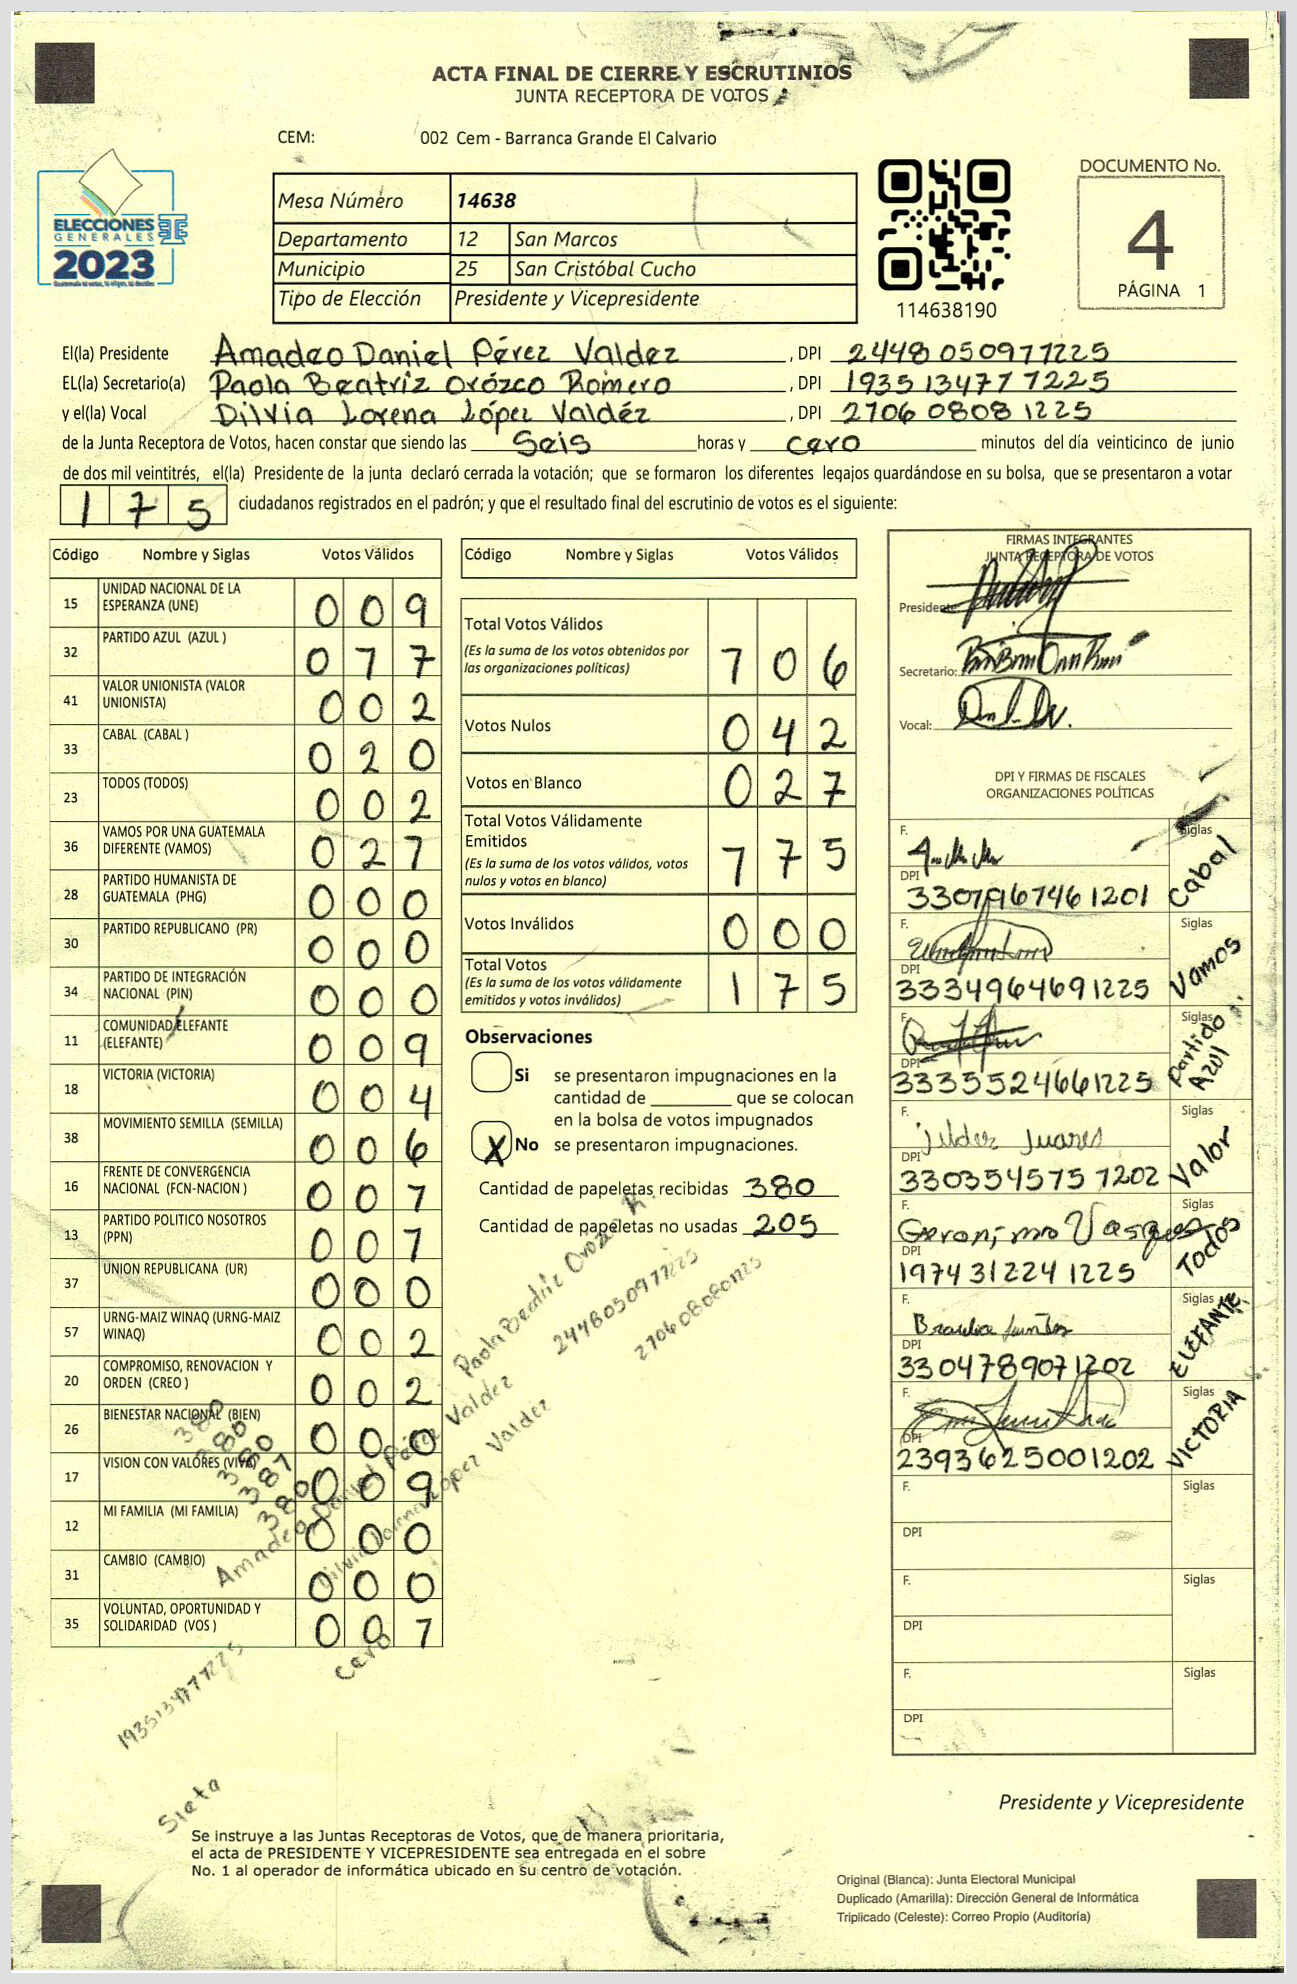 ACTA FINAL DE CIERRE Y ESCRUTINIOS
JUNTA RECEPTORA DE VOTOS
CEM: 002 Cem - Barranca Grande El Calvario
ELECCIONES
GENERALES
2023
Mesa Número 14638
Departamento 12 San Marcos
Municipio 25 San Cristóbal Cucho
Tipo de Elección Presidente y Vicepresidente
114638190
DOCUMENTO No.
4
PÁGINA 1
El(la) Presidente Amadeo Daniel Pérez Valdez , DPI 2448 050971225
EL(la) Secretario(a) Paola Beatriz Orózco Romero , DPI 1935 13477 1225
y el(la) Vocal Dilvia Lorena López Valdéz , DPI 2706 0808 1225
de la Junta Receptora de Votos, hacen constar que siendo las Seis horas y cero minutos del día veinticinco de junio
de dos mil veintitrés, el(la) Presidente de la junta declaró cerrada la votación; que se formaron los diferentes legajos guardándose en su bolsa, que se presentaron a votar
175 ciudadanos registrados en el padrón; y que el resultado final del escrutinio de votos es el siguiente:
Código Nombre y Siglas Votos Válidos
15 UNIDAD NACIONAL DE LA ESPERANZA (UNE) 009
32 PARTIDO AZUL (AZUL ) 077
41 VALOR UNIONISTA (VALOR UNIONISTA) 002
33 CABAL (CABAL ) 020
23 TODOS (TODOS) 002
36 VAMOS POR UNA GUATEMALA DIFERENTE (VAMOS) 027
28 PARTIDO HUMANISTA DE GUATEMALA (PHG) 000
30 PARTIDO REPUBLICANO (PR) 000
34 PARTIDO DE INTEGRACIÓN NACIONAL (PIN) 000
11 COMUNIDAD ELEFANTE (ELEFANTE) 009
18 VICTORIA (VICTORIA) 004
38 MOVIMIENTO SEMILLA (SEMILLA) 006
16 FRENTE DE CONVERGENCIA NACIONAL (FCN-NACION ) 007
13 PARTIDO POLITICO NOSOTROS (PPN) 007
37 UNION REPUBLICANA (UR) 000
57 URNG-MAIZ WINAQ (URNG-MAIZ WINAQ) 002
20 COMPROMISO, RENOVACION Y ORDEN (CREO ) 002
26 BIENESTAR NACIONAL (BIEN) 000
17 VISION CON VALORES (VIVA) 009
12 MI FAMILIA (MI FAMILIA) 000
31 CAMBIO (CAMBIO) 000
35 VOLUNTAD, OPORTUNIDAD Y SOLIDARIDAD (VOS ) 007
Código Nombre y Siglas Votos Válidos
Total Votos Válidos 706
(Es la suma de los votos obtenidos por
las organizaciones políticas)
Votos Nulos 042
Votos en Blanco 027
Total Votos Válidamente
Emitidos 775
(Es la suma de los votos válidos, votos
nulos y votos en blanco)
Votos Inválidos 000
Total Votos 175
(Es la suma de los votos válidamente
emitidos y votos inválidos)
Observaciones
Si se presentaron impugnaciones en la
cantidad de ________ que se colocan
en la bolsa de votos impugnados
X No se presentaron impugnaciones.
Cantidad de papeletas recibidas 380
Cantidad de papeletas no usadas 205
FIRMAS INTEGRANTES
JUNTA RECEPTORA DE VOTOS
Presidente:
Secretario:
Vocal:
DPI Y FIRMAS DE FISCALES
ORGANIZACIONES POLÍTICAS
F. Siglas Cabal
DPI 3307967461201
F. Siglas Vamos
DPI 3334964691225
F. Siglas Partido Azul
DPI 3335524661225
F. Siglas Valor
DPI 330354575 7202
F. Geronimo Vasquez Siglas Todos
DPI 197431224 1225
F. Siglas ELEFANTE
DPI 3304789071202
F. Siglas VICTORIA
DPI 2393625001202
F. Siglas
DPI
F. Siglas
DPI
F. Siglas
DPI
Paola Beatriz Orozco R.
2448050971225
270608081225
380
380
380
387
380
Amadeo Daniel Pérez Valdez
Dilvia Lorena López Valdez
cero
1935134771225
Siete
Presidente y Vicepresidente
Se instruye a las Juntas Receptoras de Votos, que de manera prioritaria,
el acta de PRESIDENTE Y VICEPRESIDENTE sea entregada en el sobre
No. 1 al operador de informática ubicado en su centro de votación.
Original (Blanca): Junta Electoral Municipal
Duplicado (Amarilla): Dirección General de Informática
Triplicado (Celeste): Correo Propio (Auditoría)